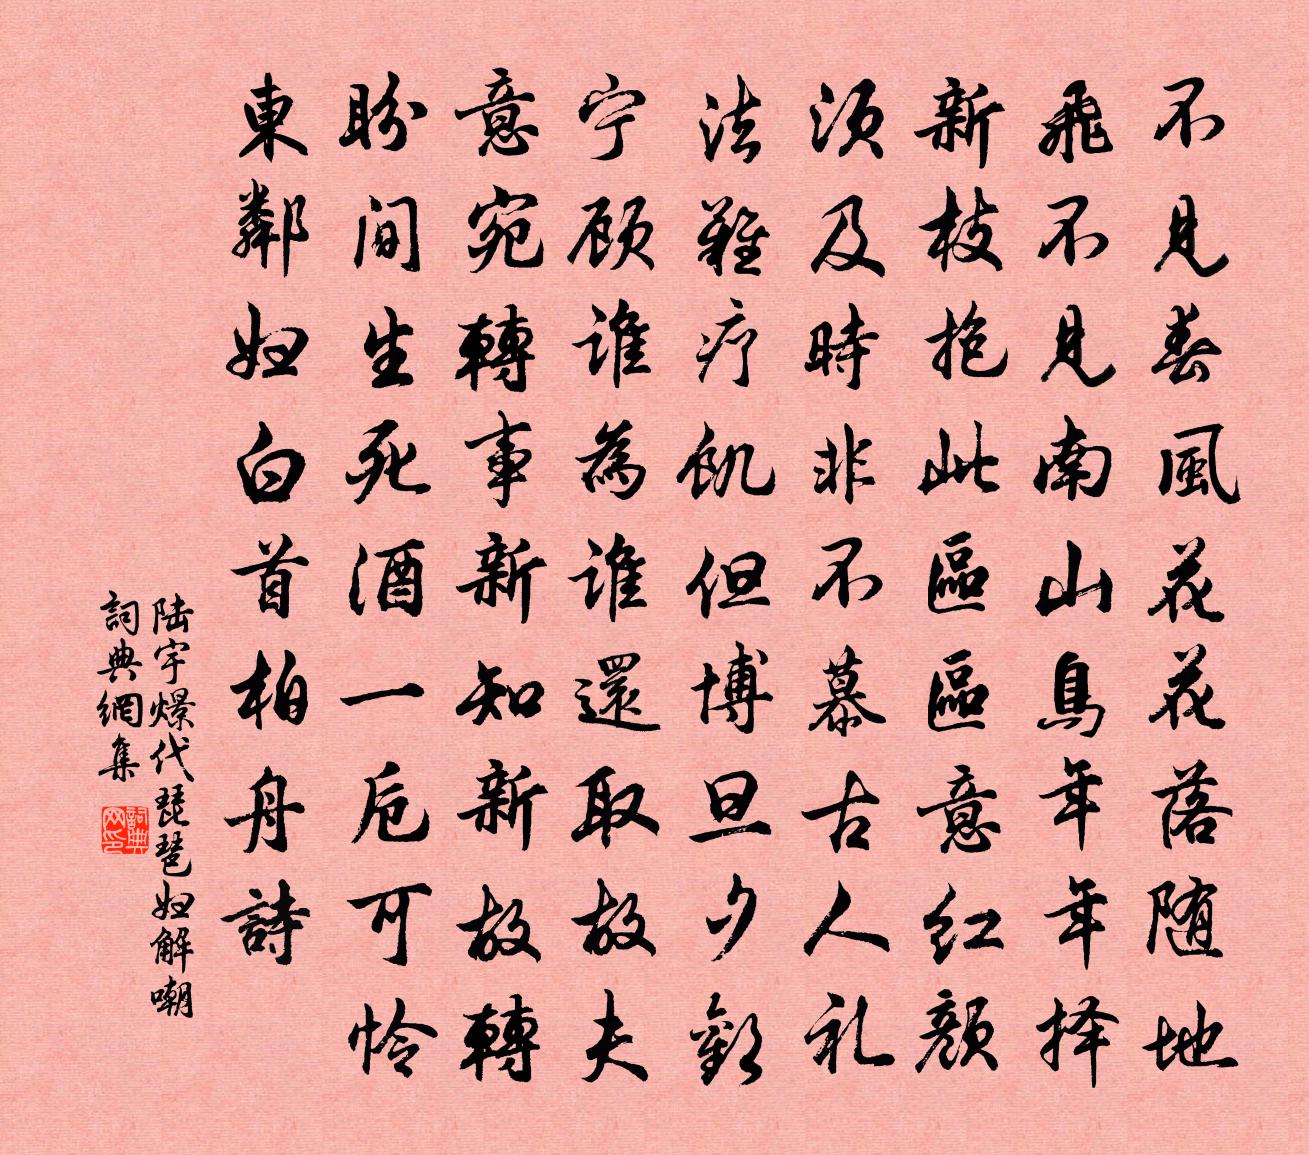 不見春風花花落隨地
飛不見南山鳥年年择
新枝抱此區區意红顏
須及時非不慕古人礼
法難疗飢但博旦夕歡
宁顾誰為誰還取故夫
意宛轉事新知新故轉
盼间生死酒一卮可怜
東鄰妇白首柏舟詩
陆宇燝代琵琶妇解嘲
詞典網集
詞典网印